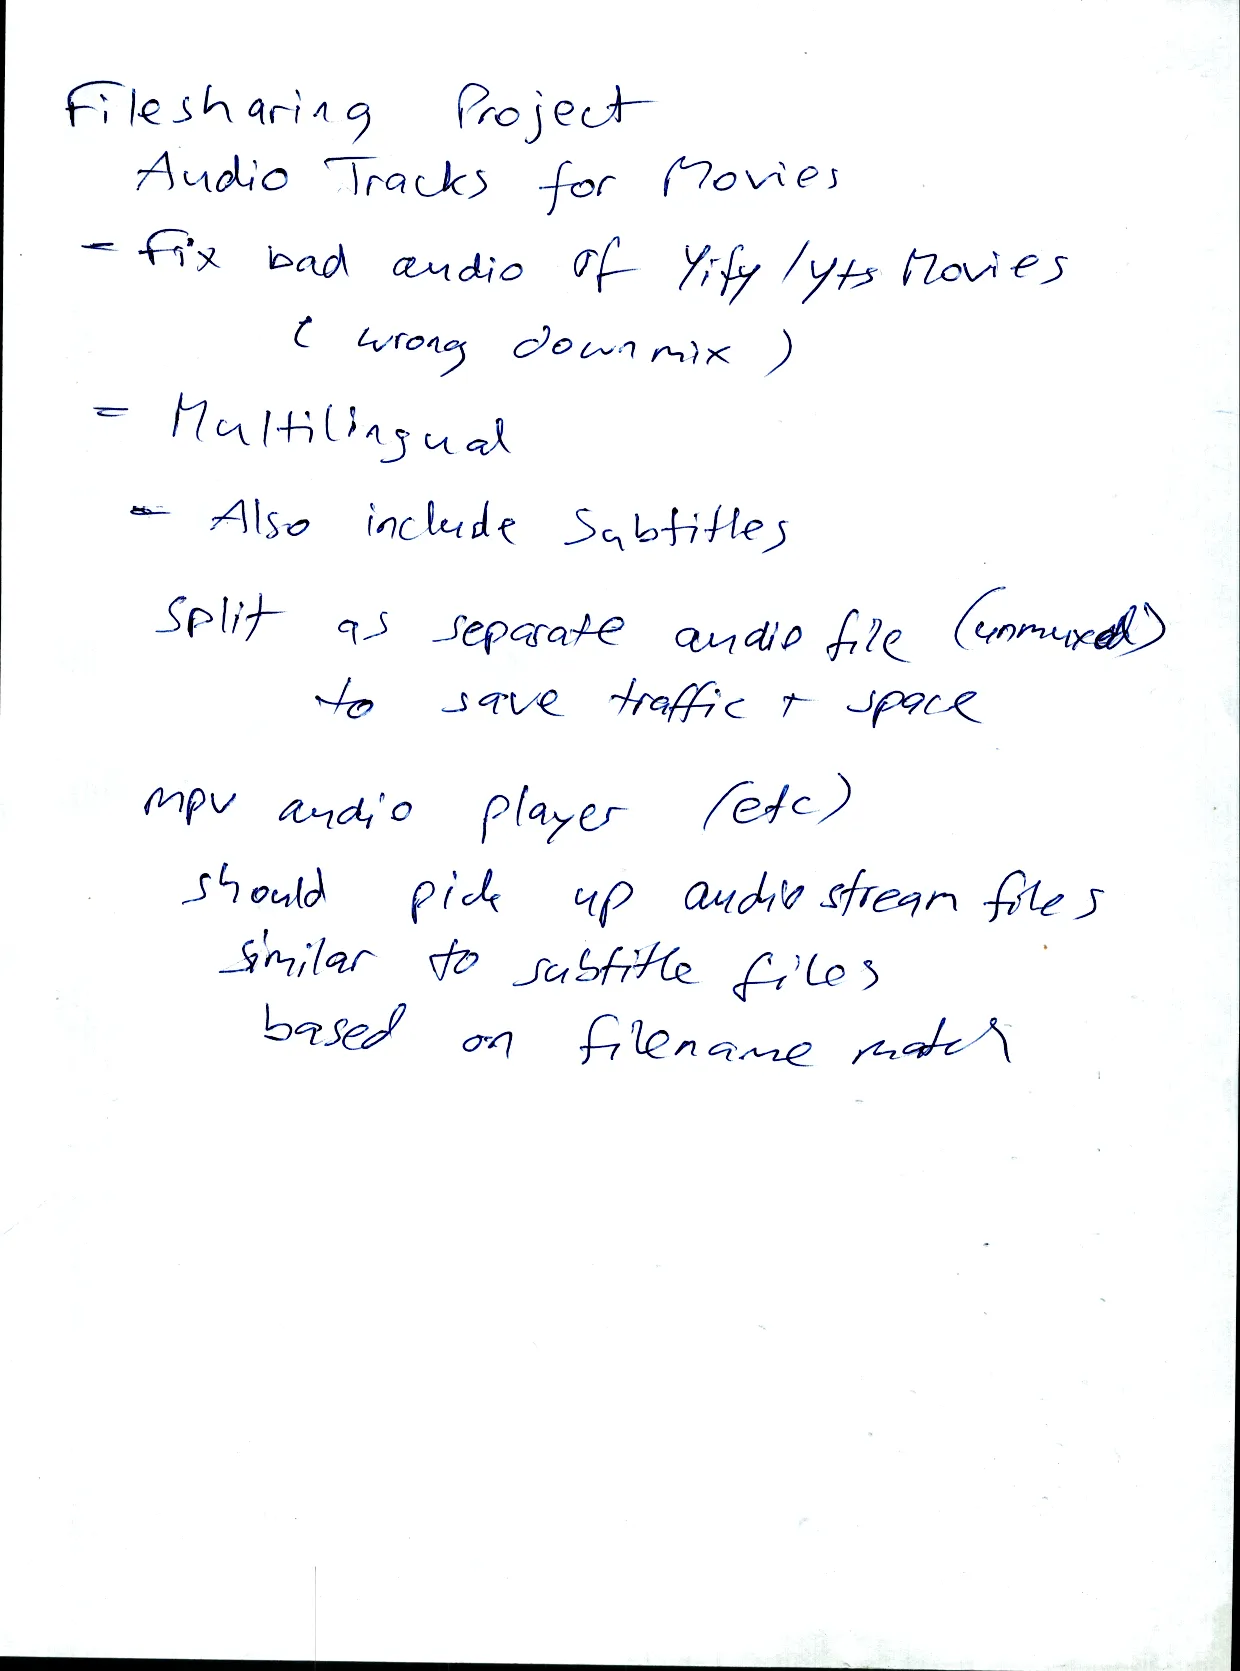 Filesharing Project
Audio Tracks for Movies
- Fix bad audio of Yify/yts Movies
( wrong downmix )
- Multilingual
- Also include Subtitles
Split as separate audio file (unmuxed)
to save traffic + space
mpv audio player (etc)
should pick up audio stream files
similar to subtitle files
based on filename match